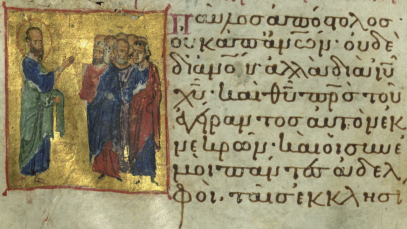 Παῦλος ἀπόστολος
οὐκ ἀπ' ἀν̅ω̅ν̅· οὐδὲ
δι' ἀν̅ο̅υ̅· ἀλλὰ διὰ ι̅υ̅
χ̅υ̅· καὶ θ̅υ̅ π̅ρ̅ς̅ τοῦ
ἐγείραντος αὐτὸν ἐκ
νεκρῶν· καὶ οἱ σὺν ἐ
μοὶ πάντες ἀδελ
φοί· ταῖς ἐκκλησί